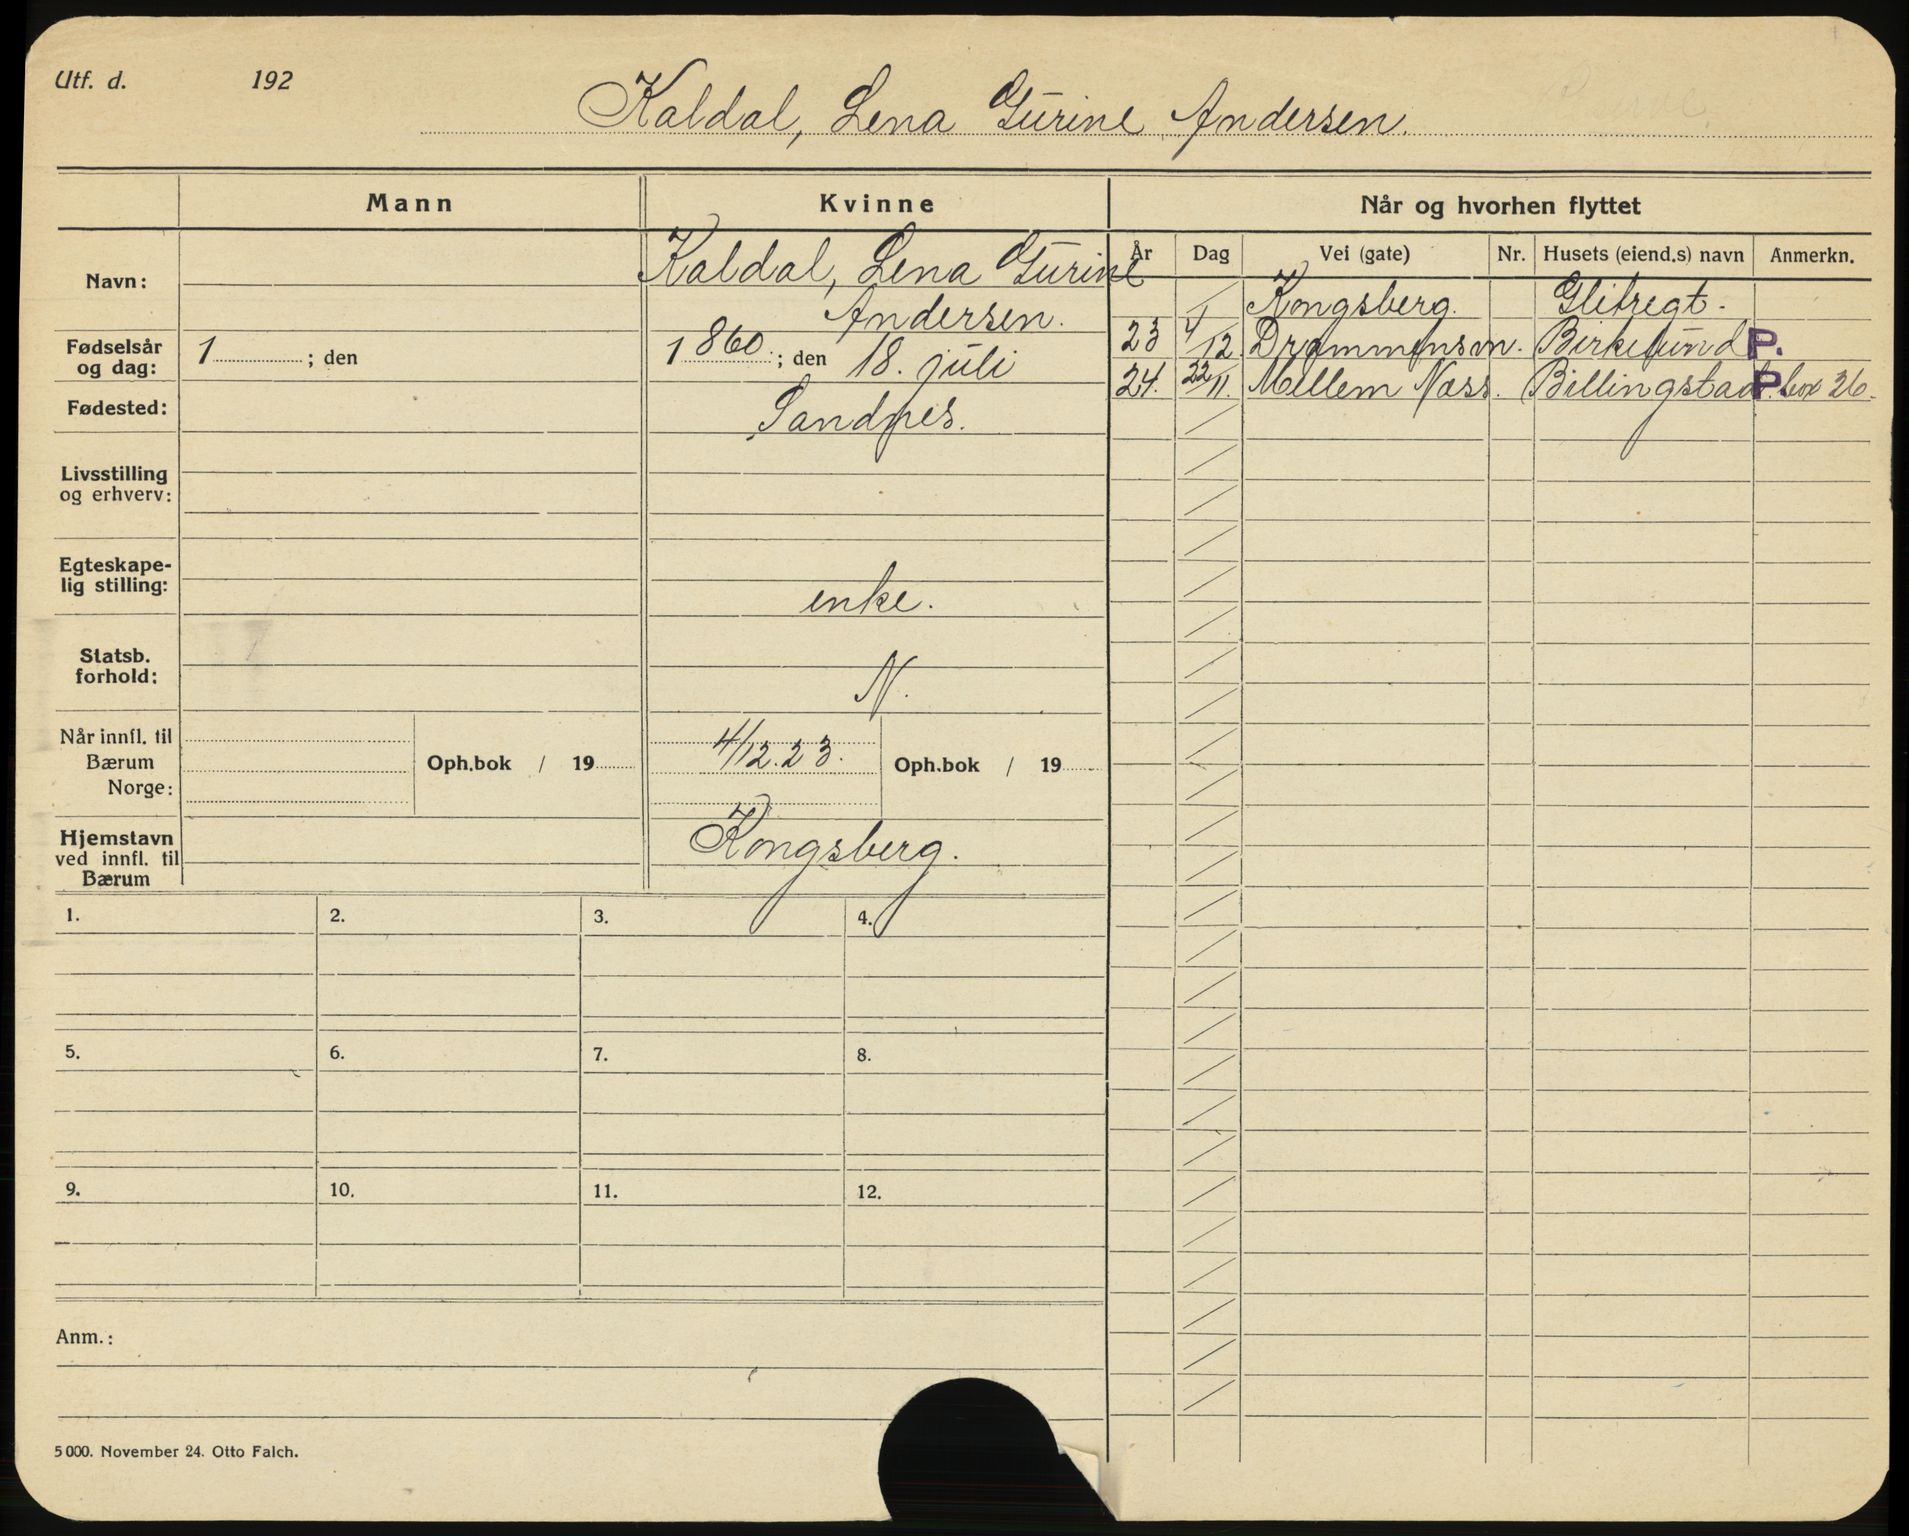 Utf. d. 192
Kaldal, Lena Gurine Andersen.
Mann Kvinne Når og hvorhen flyttet
År Dag Vei (gate) Nr. Husets (eiend.s) navn Anmerkn.
Navn: Kaldal, Lena Gurine
Andersen.
Fødselsår og dag: 1 ; den 1860 ; den 18. juli
Fødested: Sandnes.
Livsstilling
og erhverv:
Egteskape-
lig stilling: enke.
Statsb.
forhold: N.
Når innfl. til
Bærum
Norge:
Oph.bok / 19
4/12.23.
Oph.bok / 19
Hjemstavn
ved innfl. til
Bærum
Kongsberg.
Kongsberg.
23 4/12 Drammensvn. P.
24. 22/11. Mellem Næss. Billingstad P. box 36.
1. 2. 3. 4.
5. 6. 7. 8.
9. 10. 11. 12.
Anm.:
5000. November 24. Otto Falch.